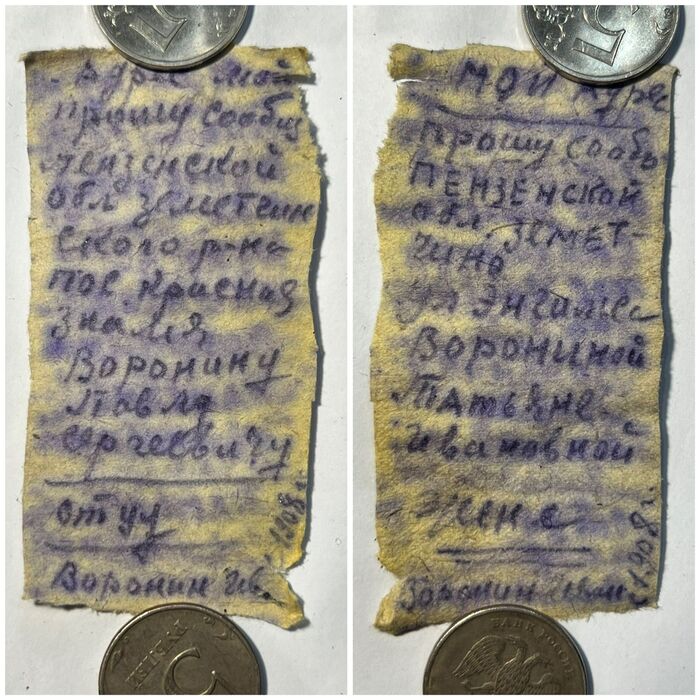 Адрес мой
прошу сообщ
пензенской
обл. земетчин
ского р-на
пос. Красная
Знамя
Воронину
Павлу
сергеевичу
отцу
Воронин Ив.
1908 г.
мой адрес
прошу сообщ
ПЕНЗЕНСКОЙ
обл. ЗЕМЕТ-
ЧИНО
ул Энгельса
Ворониной
Татьяне
Ивановной
жене
Воронин Иван
1908 г.
5
РУБЛЕЙ
5
БАНК РОССИИ